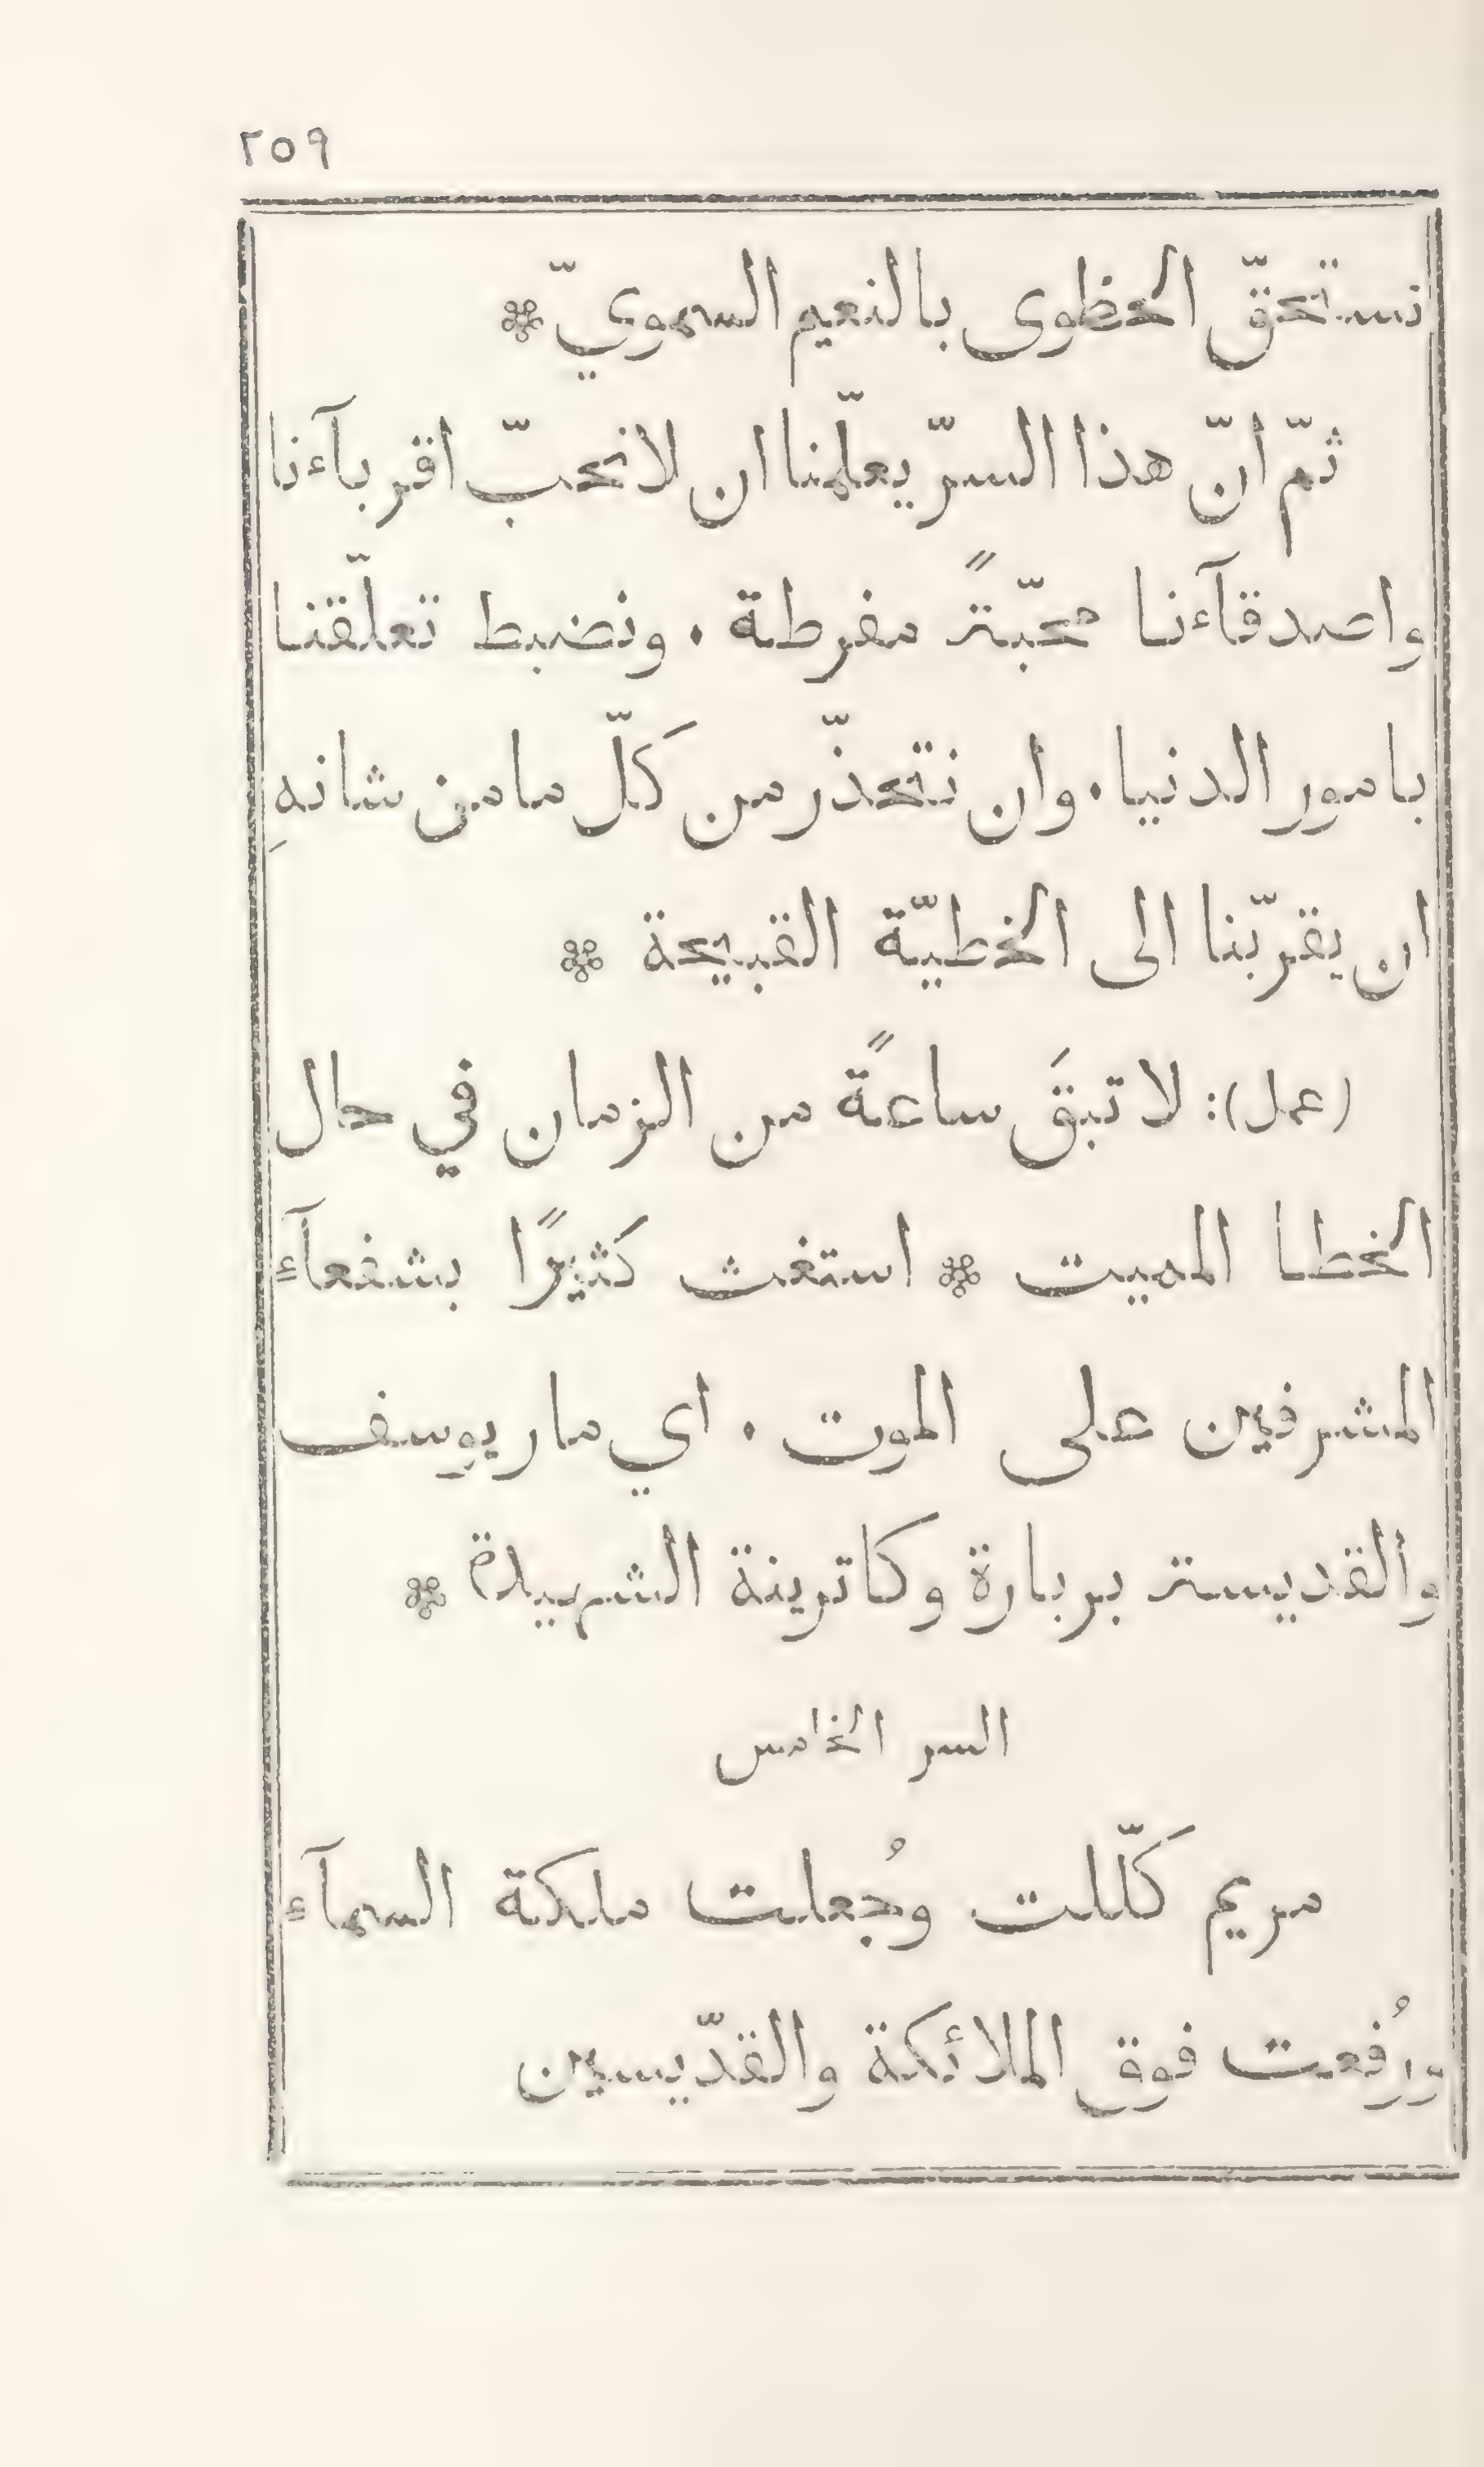 ٢٥٩
نستحقّ الحظوى بالنعيم السموي ّ *
ثمّ انّ هذا السرّ يعلّمنا ان لا نحبّ اقربآءنا
واصدقآءنا محبّةً مفرطة . ونضبط تعلّقنا
بامور الدنيا . وان نتحذّر من كلّ ما من شانهِ
ان يقرّبنا الى الخطيّة القبيحة *
(عمل): لا تبقَ ساعةً من الزمان في حال
الخطا المميت * استغث كثيرًا بشفعآءِ
المشرفين على الموت . اي مار يوسف
والقديسة بربارة وكاترينة الشهيدة *
السر الخامس
مريم كلّلت وجُعلت ملكة السمآء
ورُفعت فوق الملائكة والقدّيسين